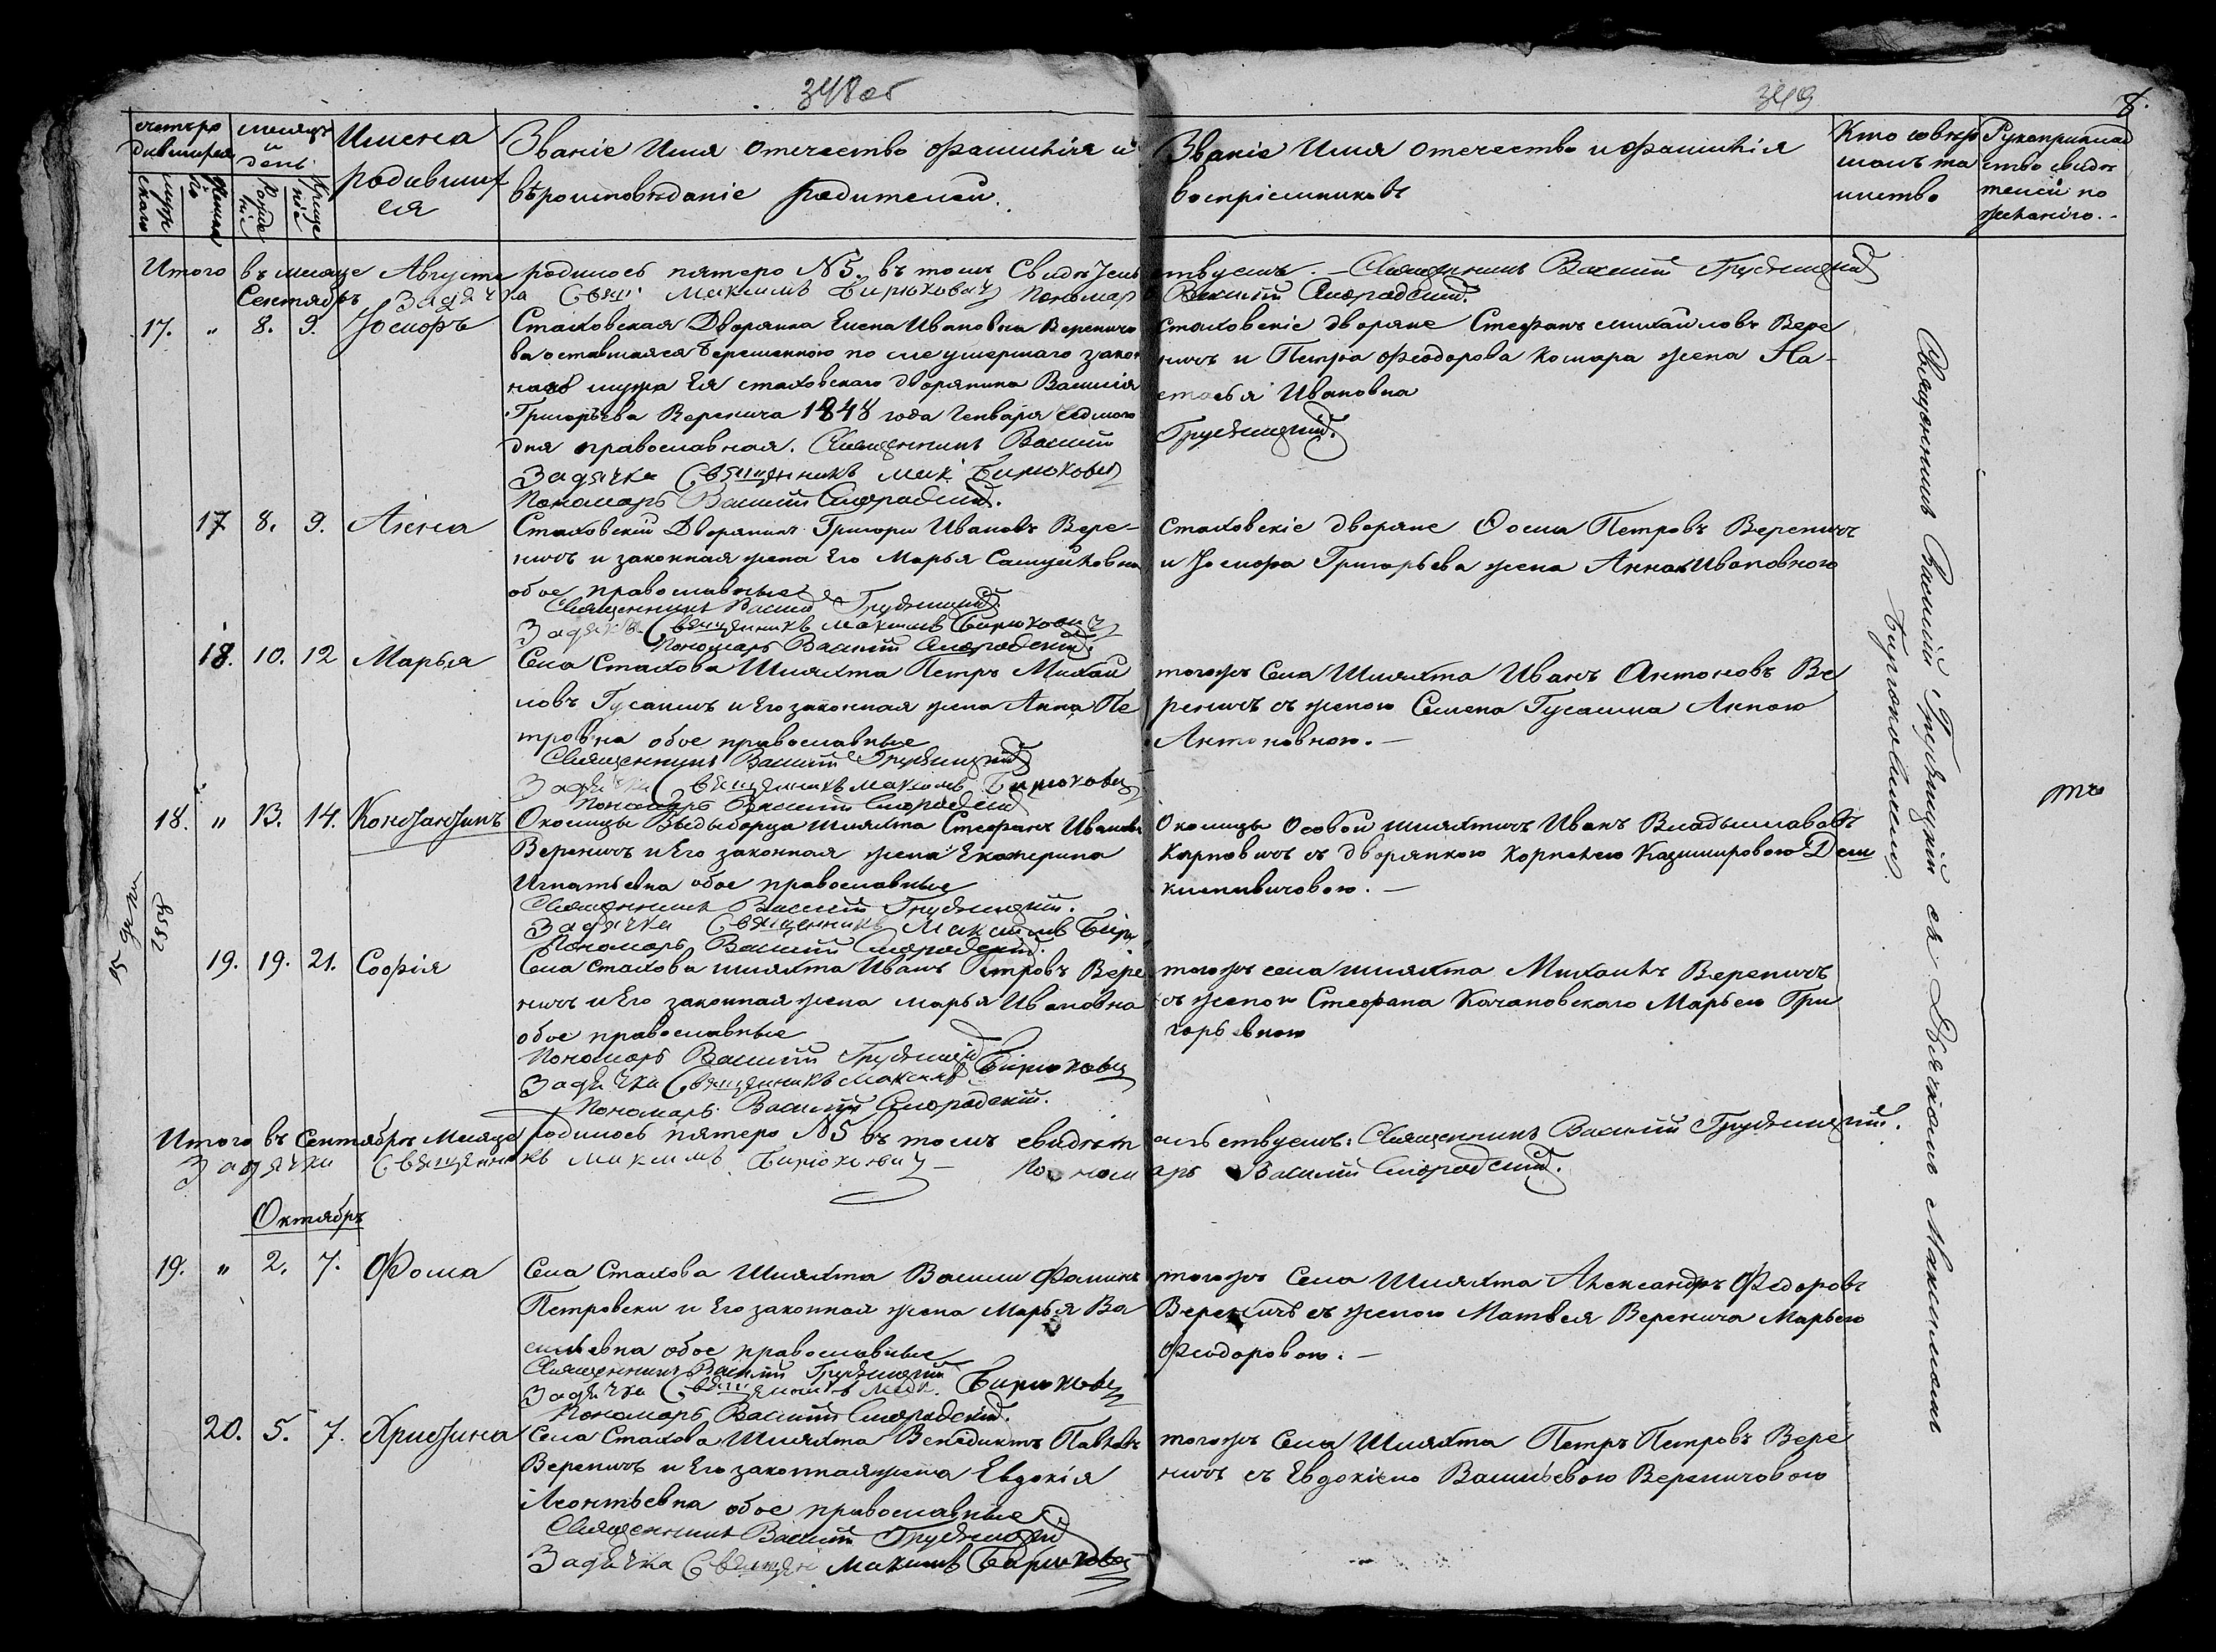 348 об
349
8.
счетъ ро
дившихся
мужескаго
женска
го
месяцъ
и
день
Рожде
нiе
Креще
нiе
Имена
родивших
ся
Званiе Имя отечество фамилiя и
вѣроисповѣданiе родителей.
Званiе Имя отечество и фамилiя
воспрiемниковъ
Кто совер
шалъ та
инство
Рукоприклад
ство свидѣ
телей по
желанiю.
Итого въ месяце Августе родилось пятеро N5. въ томъ Свидѣтель ствуемъ. – Священникъ Василiй
Сентябрь За дячка Свящ Максимъ Бирюковичъ Пономарь Василiй
17. " 8. 9. Iосифъ
Стаховская Дворянка Елена Ивановна Вереничо
ва оставшаяся беременною после умершаго закон
наго мужа Ея стаховскаго дворянина Василiя
Григорьева Веренича 1848 года Генваря седмого
дня православная. Священникъ Василiй
За дячка Священникъ Мак. Бирюкович
Пономарь Василiй
Стаховскiе дворяне Стефанъ Михайловъ Вере
ничъ и Петра Феодорова Комара жена На-
стасья Ивановна
17 8. 9. Анна
Стаховскiй Дворянинъ Григори Ивановъ Вере-
ничъ и законная жена Его Марья Самуйловна
обое православные
Священникъ Василiй
За дячка Священникъ Максимъ Бирюкович
Пономарь Василiй
Стаховскiе дворяне Фома Петровъ Вереничъ
и Iосифа Григорьева жена Анна Ивановного
18. 10. 12 Марья
Села Стахова Шляхта Петръ Михай
ловъ Гусакъ и Его законная жена Анна Пе
тровна обое православные
Священникъ Василiй
За дячка Священникъ Максимъ Бирюкович
Пономарь Василiй
тогожъ Села Шляхта Иванъ Антоновъ Ве
реничъ съ женою Семена Гусашка Анною
Антоновною. –
18. " 13. 14. Константинъ
Околицы Выдыборца шляхта Стефанъ Ивановъ
Вереничъ и Его законная жена Екатерина
Игнатьевна обое православные
Священникъ Василiй
За дячка Священникъ Максимъ Бирю
Пономарь Василiй
Околицы Особой шляхтичъ Иванъ Владыславовъ
Карповичъ съ дворянкою Корнелею Казимировою Дем
киевичовою. –
1854
19. 19. 21. Софiя
Села Стахова шляхта Иванъ Петровъ Вере
ничъ и Его законная жена Марья Ивановна
обое православные
Пономарь Василiй
За дячка Священникъ Максимъ Бирюкович
Пономарь Василiй
тогожъ села шляхта Михаилъ Вереничъ
съ женою Стефана Качановскаго Марьею Гри
горьевною
Итого въ Сентябрѣ Месяце родилось пятеро N5 въ томъ свидѣт ельствуемъ: Священникъ Василiй
За дячка Священникъ Максимъ Бирюковичъ – Пономарь Василiй
Октябрь
19. " 2. 7. Фома
Села Стахова Шляхта Василий Фоминъ
Петровски и Его законная жена Марья Ва
сильевна обое православные
Священникъ Василiй
За дячка Священникъ Мак. Бирюкович
Пономарь Василiй
тогожъ Села Шляхта Александръ Федоровъ
Вереничъ съ женою Матвея Веренича Марьею
Феодоровою. –
20. 5. 7. Христина
Села Стахова Шляхта Венедиктъ Павловъ
Вереничъ и Его законная жена Евдокiя
Леонтьевна обое православные
Священникъ Василiй
За дячка Священ Максимъ Бирюкович
тогожъ Села Шляхта Петръ Петровъ Вере
ничъ съ Евдокiею Васильевою Вереничовою
Священникъ Василiй съ Дьячкомъ Максимомъ
Бирюковичемъ